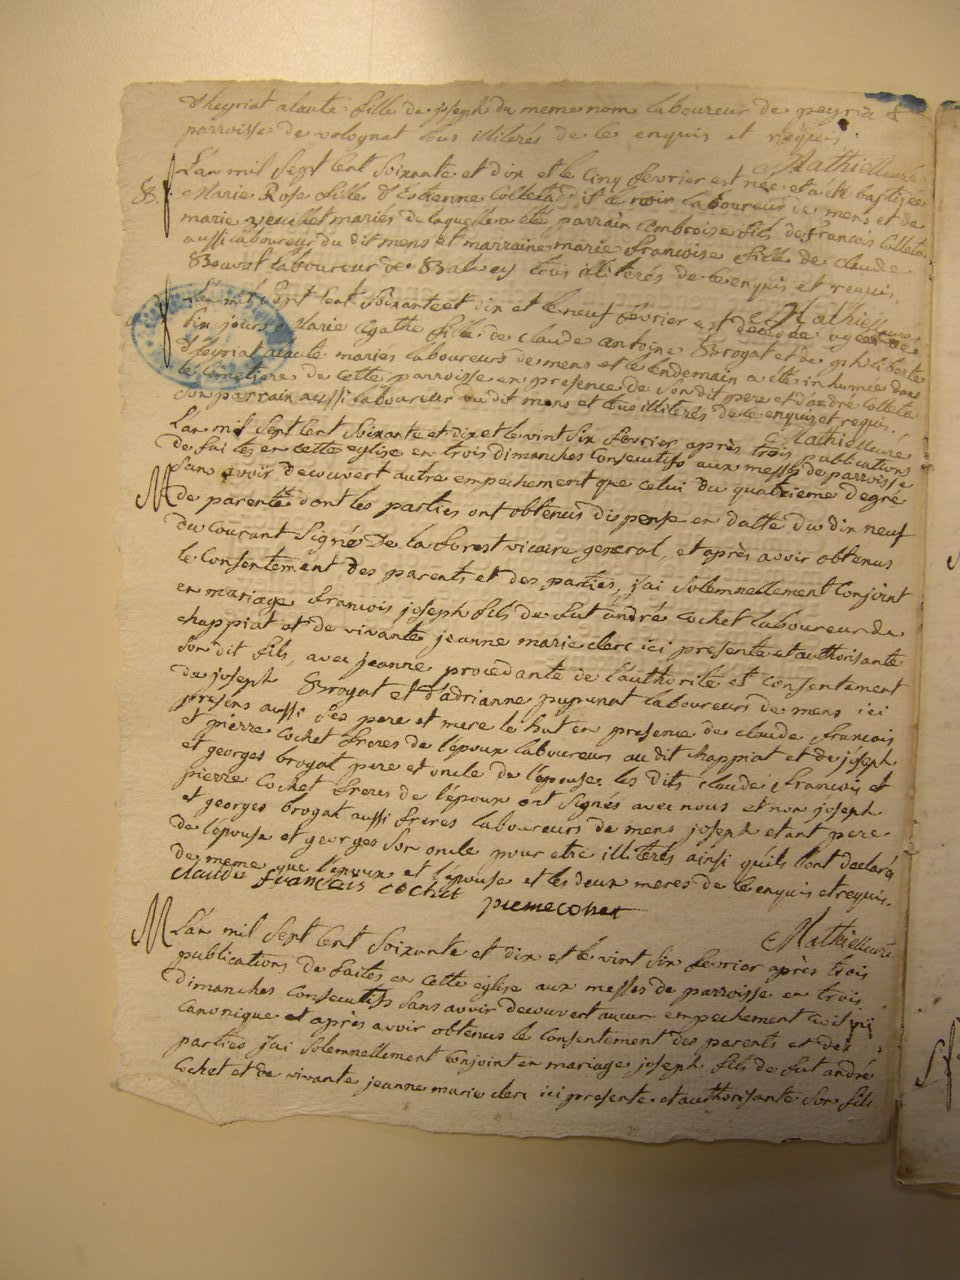 d'heyriat alauté fille de joseph du meme nom laboureur de peyriat &
parroisse de volognat tous illiterés de ce enquis et requis
Mathieu curé
B. L'an mil sept cent soixante et dix et le cinq fevrier est née et a été baptisée
Marie Rose fille d'Estienne Colleta dit le noir laboureur de mens et de
marie veuillet mariés de laquelle a été parrain Ambroise fils de francois Colleta
aussi laboureur du dit mens et marraine marie francoise fille de claude
laboureur de tous illiterés de ce enquis et requis
Mathieu curé
L'an mil sept cent soixante et dix et le neuf fevrier est decedée agée de
six jours Marie Agathe fille de claude antoine Brogat et de
d'heyriat alauté mariés laboureurs de mens et le lendemain a été inhumée dans
le cimetiere de cette parroisse en presence de son dit pere et d'andré Colleta
son parrain aussi laboureur du dit mens et tous illiterés de ce enquis et requis.
Mathieu curé
L'an mil sept cent soixante et dix et le vint six fevrier après trois publications
de faites en cette eglise en trois dimanches consecutifs aux messes de parroisse
sans avoir decouvert autre empechement que celui du quatrieme degré
M de parenté dont les parties ont obtenus dispense en datte du dix neuf
du courant signé De la forest vicaire general, et après avoir obtenus
le consentement des parents et des parties, j'ai solemnellement conjoint
en mariage francois joseph fils de fut andré cochet laboureur de
chappiat et de vivante jeanne marie clerc ici presente et authorisante
son dit fils, avec jeanne procedante de l'authorité et consentement
de joseph Brogat et d'adrianne pugunat laboureurs de mens ici
presens aussi ses pere et mere le tout en presence de claude francois
et pierre cochet freres de l'epoux laboureurs au dit chappiat et de joseph
et georges brogat pere et oncle de l'epouse. les dits claude francois et
pierre cochet freres de l'epoux ont signés avec nous et non joseph
et georges brogat aussi freres laboureurs de mens joseph etant pere
de l'epouse et georges son oncle pour etre illiterés ainsi qu'ils l'ont declaré
de meme que l'epoux et l'epouse et les deux meres de ce enquis et requis.
claude francois cochet pierre cochet
Mathieu curé
M L'an mil sept cent soixante et dix et le vint six fevrier après trois
publications de faites en cette eglise aux messes de parroisse en trois
dimanches consecutifs sans avoir decouvert aucun empechement civil ni
canonique et après avoir obtenus le consentement des parents et des
parties j'ai solemnellement conjoint en mariage joseph fils de fut andré
cochet et de vivante jeanne marie clerc ici presente et authorisante son fils